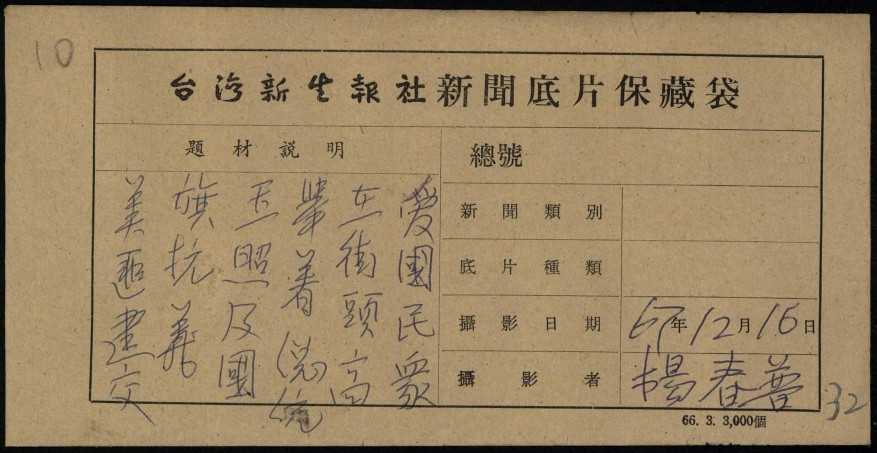 10
台灣新生報社新聞底片保藏袋
題材說明
愛國民眾
在街頭高
舉着總統
玉照及國
旗抗議
美匪建交
總號
新聞類別
底片種類
攝影日期 67年12月16日
攝影者 楊春
66. 3. 3,000個
32